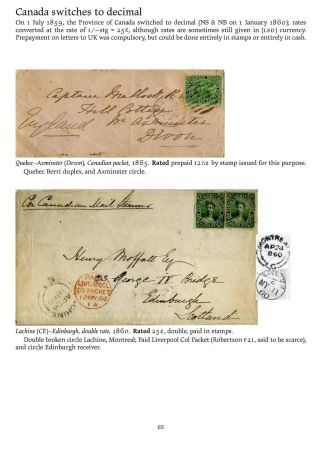 Canada switches to decimal
On 1 July 1859, the Province of Canada switched to decimal (NS & NB on 1 January 1860); rates
converted at the rate of 1/–stg = 25¢, although rates are sometimes still given in (LSD) currency.
Prepayment on letters to UK was compulsory, but could be done entirely in stamps or entirely in cash.
Captain
Hill Cottage
Nr Axminster
England
Devon
Quebec–Axminster (Devon), Canadian packet, 1865. Rated prepaid 12½¢ by stamp issued for this purpose.
Quebec Berri duplex, and Axminster circle.
Per Canadian Mail Steamer
Henry Moffatt Esq
George IV Bridge
Edinburgh
Scotland
PAID
LIVERPOOL
COL PACKET
10 MY 60
1 A
LACHINE
MONTREAL
AP 24
1860
Lachine (CE)–Edinburgh, double rate, 1860. Rated 25¢, double, paid in stamps.
Double broken circle Lachine, Montreal; Paid Liverpool Col Packet (Robertson P21, said to be scarce),
and circle Edinburgh receiver.
65